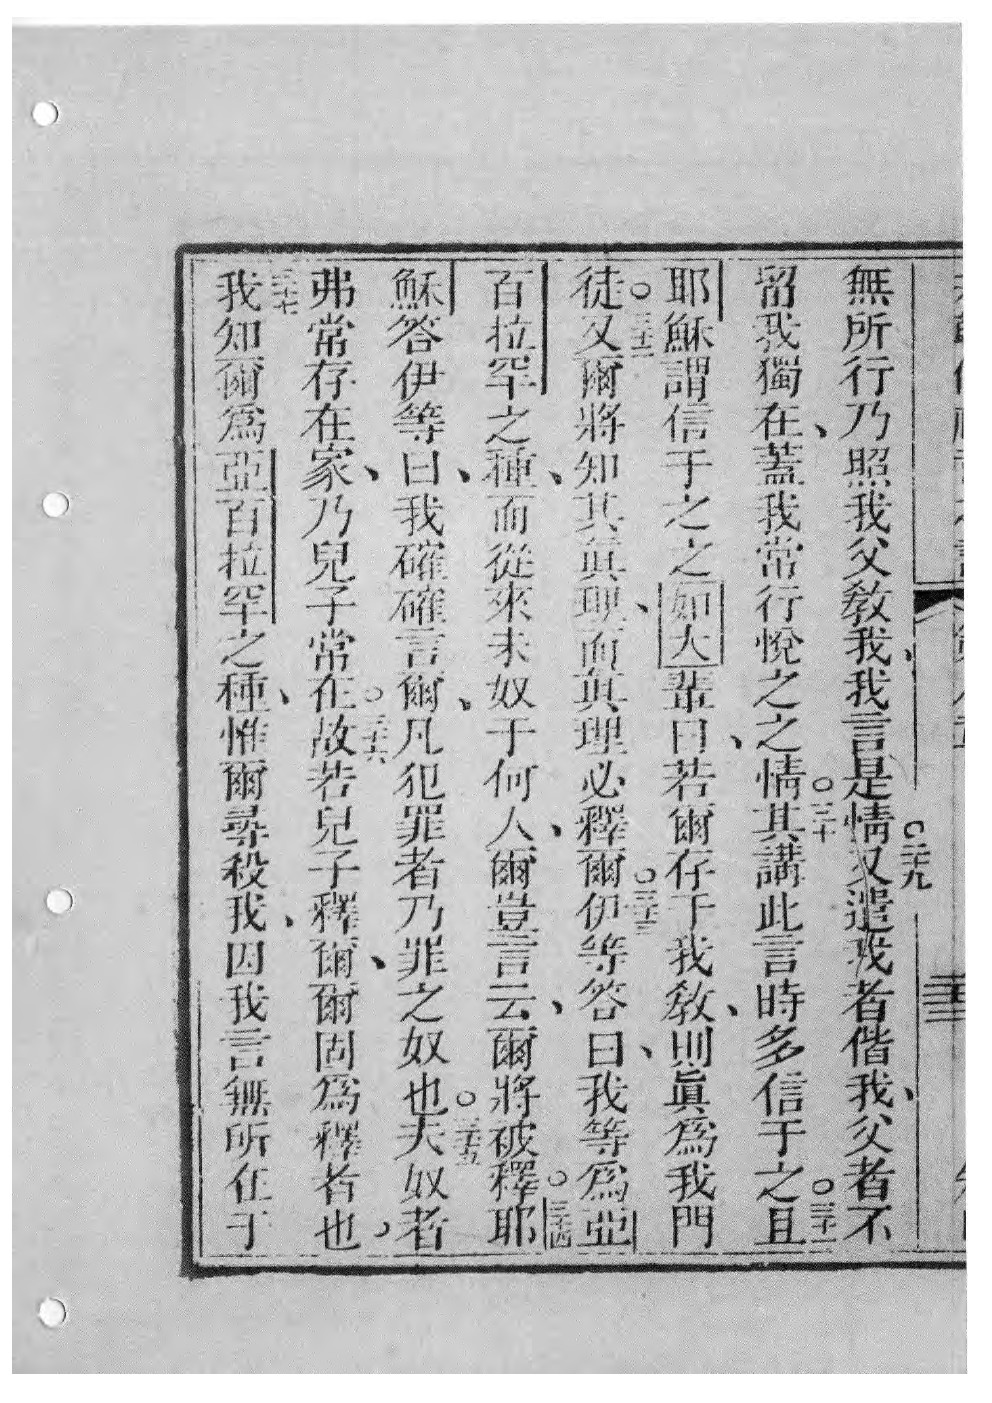 無所行乃照我父敎我、我言是情○二十九又遣我者偕我、父者不
留我獨在、蓋我常行悅之之情○三十其講此言時多信于之○三十一且
耶穌謂信于之之如大輩曰、若爾存于我敎、則眞爲我門
徒○三十二又爾將知其眞理、而眞理必釋爾○三十三伊等答曰、我等爲亞
百拉罕之種、而從來未奴于何人、爾豈言云、爾將被釋○三十四耶
穌答伊等曰、我確確言爾、凡犯罪者乃罪之奴也○三十五夫奴者
弗常存在家、乃兒子常在○三十六故若兒子釋爾、爾固爲釋者也、
三十七我知爾爲亞百拉罕之種、惟爾尋殺我、因我言無所在于